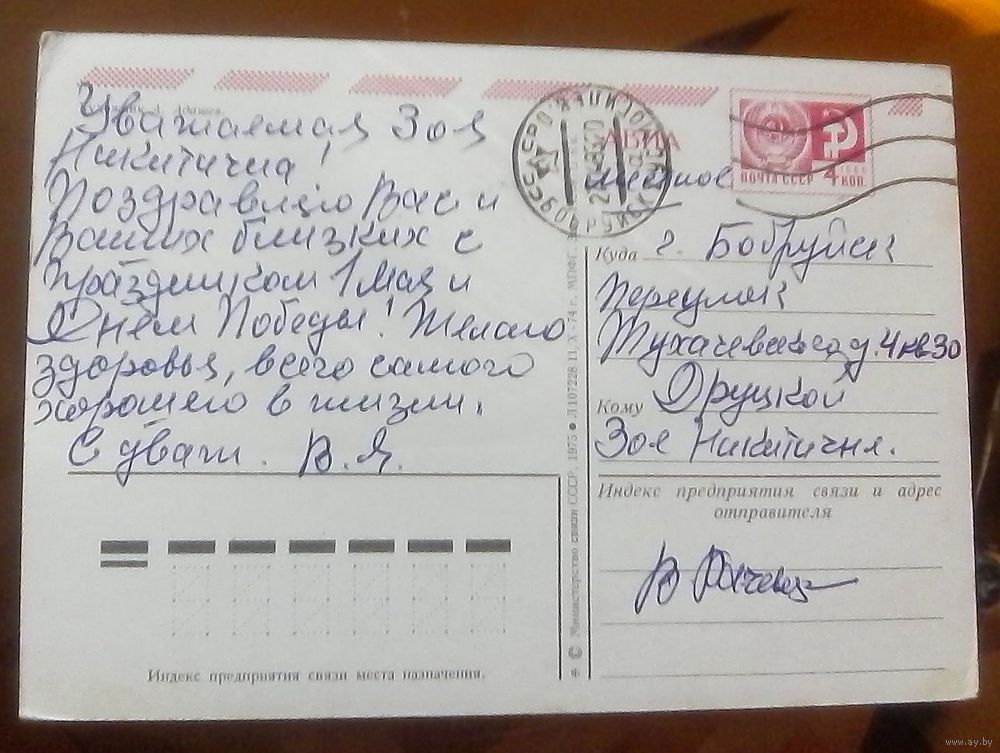 Уважаемая Зоя
Никитична!
Поздравляю Вас и
Ваших близких с
праздником 1 Мая и
Днём Победы! Желаю
здоровья, всего самого
хорошего в жизни.
С уваж. В.Я.
Индекс предприятия связи места назначения.
© Министерство связи СССР, 1975 ● Л107228 11. X. 74 г. МПФГ. з.
АВИА
ПОЧТА СССР 4 КОП.
1966
местное
Куда г. Бобруйск
Переулок
Тухачевского д. 4 кв 30
Кому Друцкой
Зоя Никитична.
Индекс предприятия связи и адрес
отправителя
www.ay.by